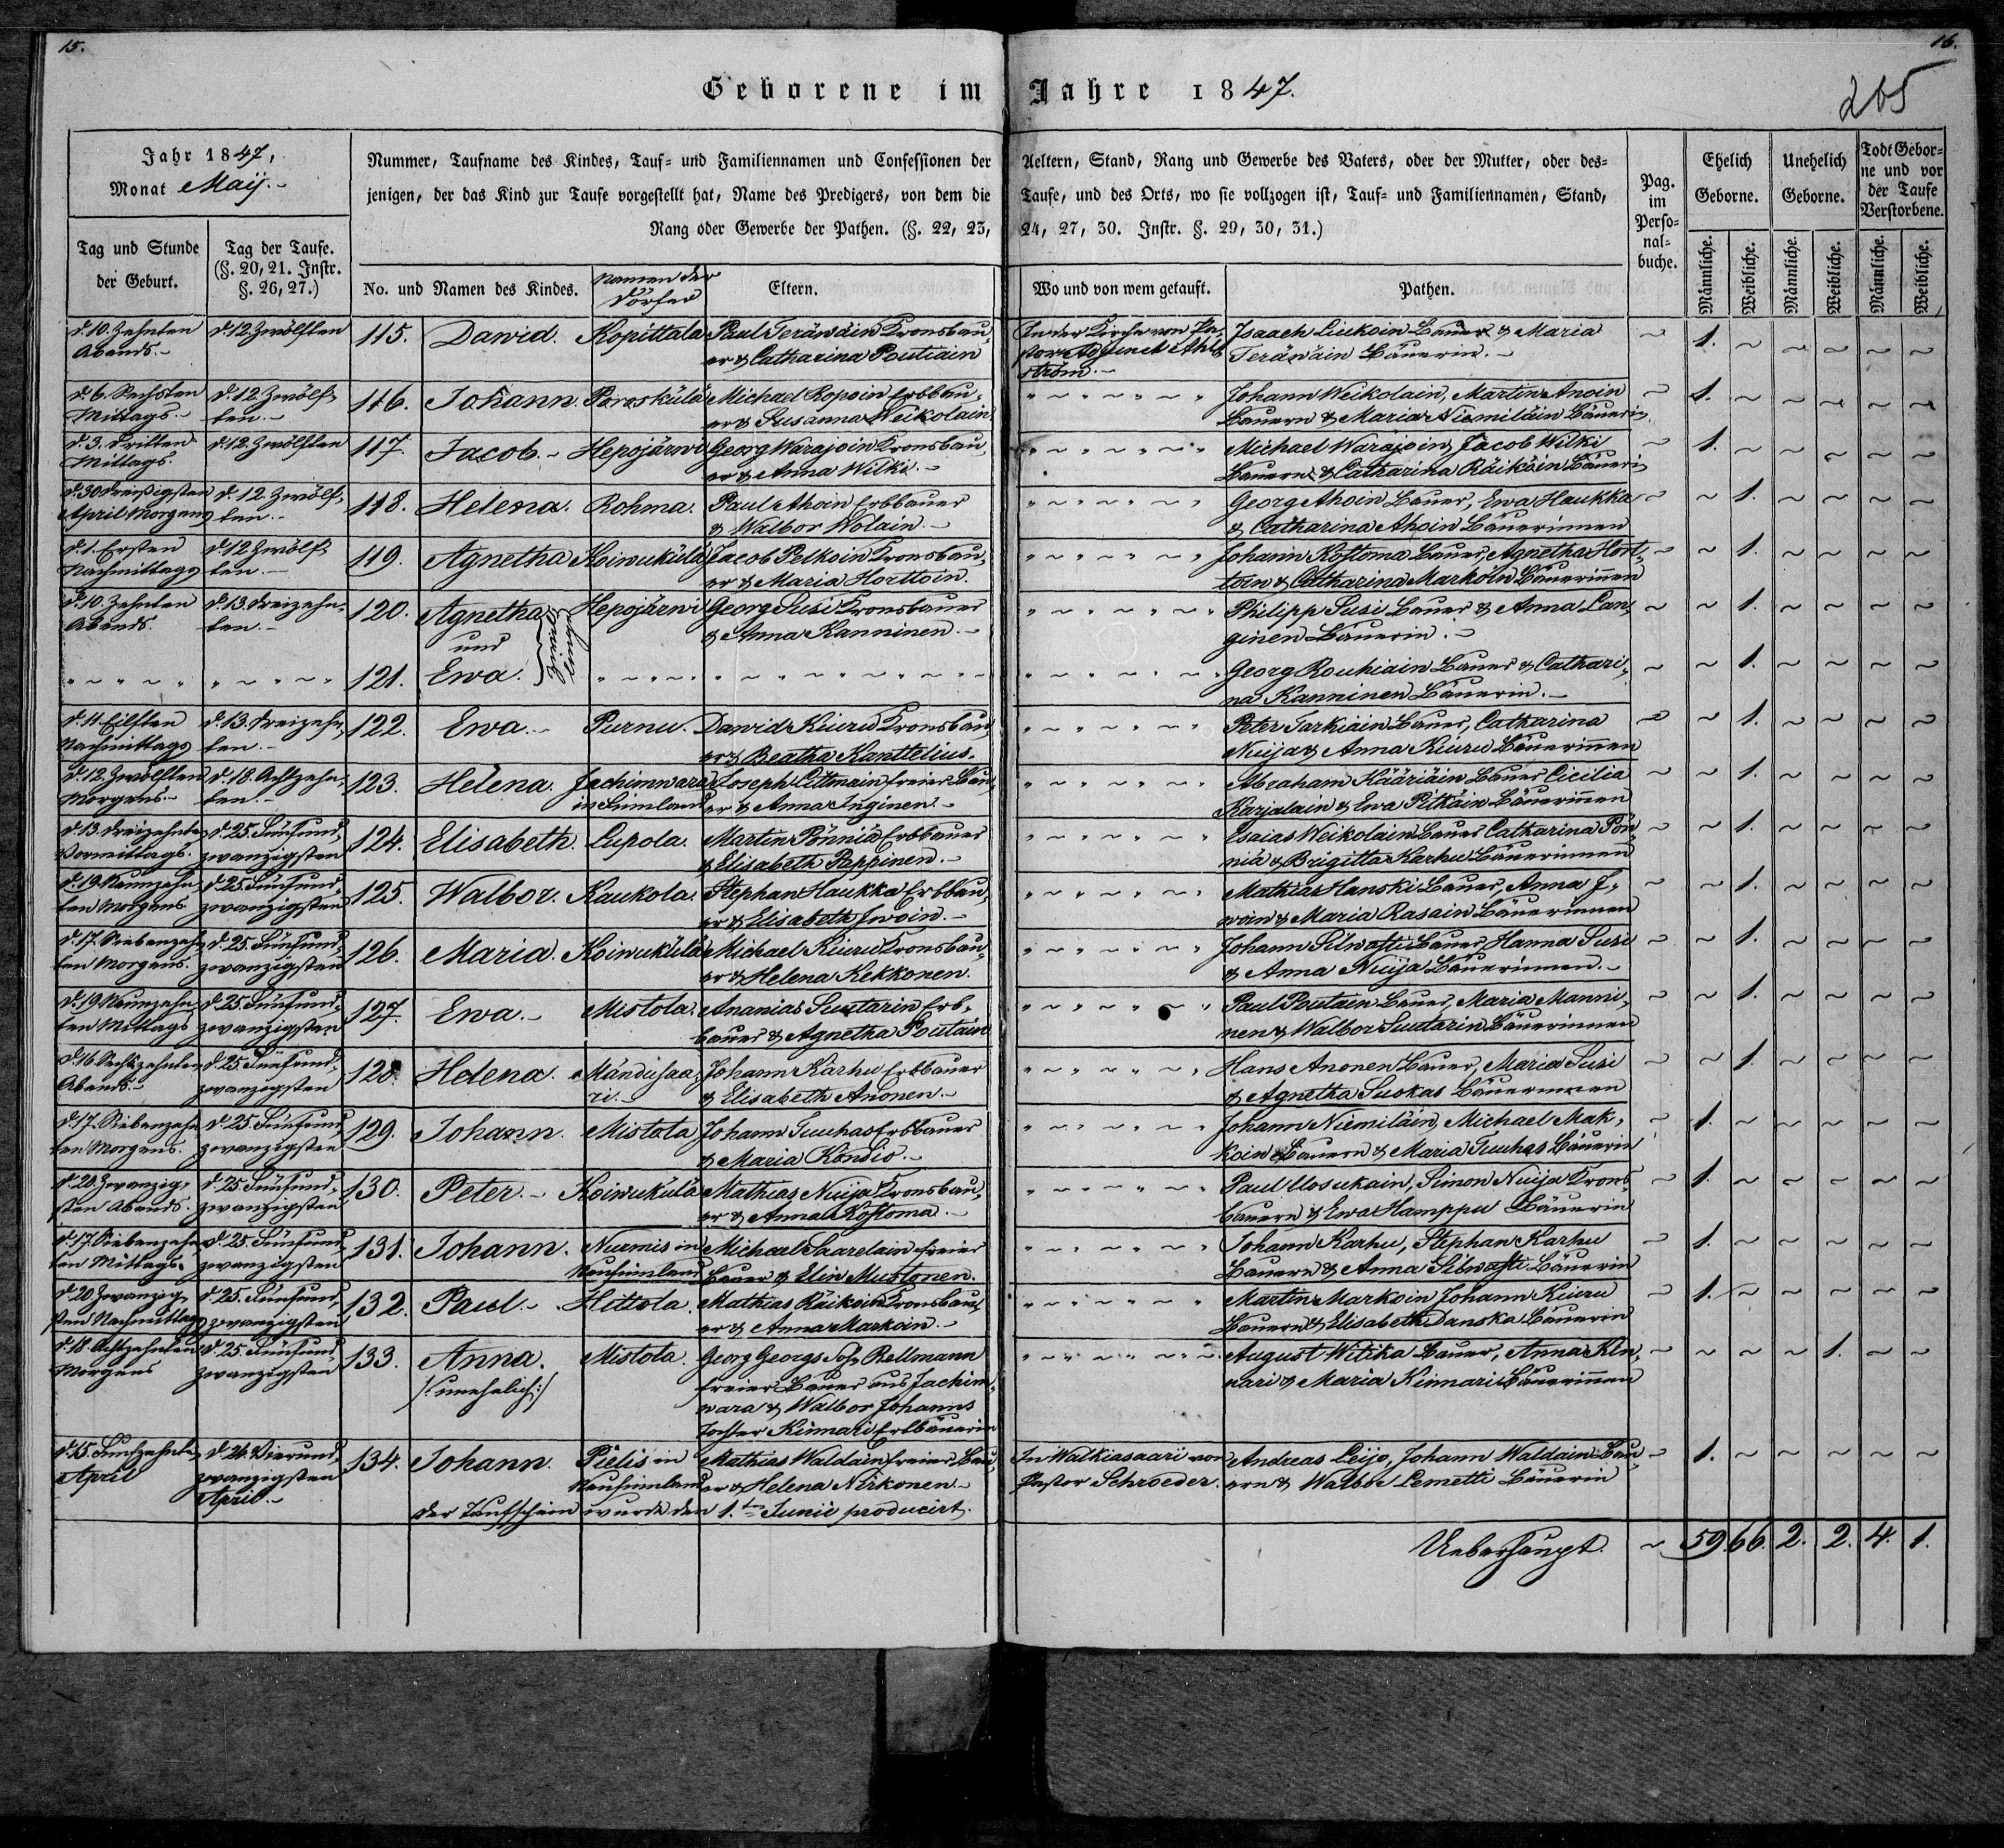 15.
16.
265
Geborene im Jahre 1847.
Jahr 1847,
Monat Maij.-
Nummer, Taufname des Kindes, Tauf- und Familiennamen und Confessionen der Aeltern, Stand, Rang und Gewerbe des Vaters, oder der Mutter, oder des=
jenigen, der das Kind zur Taufe vorgestellt hat, Name des Predigers, von dem die Taufe, und des Orts, wo sie vollzogen ist, Tauf- und Familiennamen, Stand,
Rang oder Gewerbe der Pathen. (§. 22, 23, 24, 27, 30. Instr. §. 29, 30, 31.)
Pag.
im
Perso=
nal=
buche.
Ehelich
Geborne.
Unehelich
Geborne.
Todt Gebor=
ne und vor
der Taufe
Verstorbene.
Tag und Stunde
der Geburt.
Tag der Taufe.
(§. 20, 21. Instr.
§. 26, 27.)
No. und Namen des Kindes.
Namen der
Dörfer
Eltern.
Wo und von wem getauft.
Pathen.
Männliche.
Weibliche.
Männliche.
Weibliche.
Männliche.
Weibliche.
d. 10. Zehnten
Abends.-
d. 12. Zwölften
115. Dawid. Kopittala
Paul Teräwäin Kronsbau,
er & Catharina Poutiain
In der Kirche von Pa,
stor Adjunct Ahl,
ström.-
Isaach Liukoin Bauer & Maria
Teräwäin Bäuerin.-
1.
d. 6. Sechsten
Mittags.-
d. 12. Zwölf,
ten.-
116. Johann. Poroskülä
Michael Ropoin Erbbau,
er & Susanna Weikolain
Johann Weikolain, Martin Anoin
Bauern & Maria Niemiläin Bäuerin
1.
d. 3. Dritten
Mittags.
d. 12. Zwölften
117. Jacob.- Hepojärwi
Georg Warajoin Kronsbau,
er & Anna Wilki.-
Michael Warajoin, Jacob Wilki
Bauern & Catharina Räiköin Bäueri
1.
d. 30 Dreißigsten
April Morgens
d. 12. Zwölf,
ten.-
118. Helena. Rohma.
Paul Ahoin Erbbauer
& Walbor Wolain.-
Georg Ahoin Bauer, Ewa Haukka
& Catharina Ahoin Bäuerinnen
1.
d. 1. Ersten
Nachmittags
d. 12 Zwölf,
ten.-
119. Agnetha Koiwukülä
Jacob Pelkoin Kronsbau,
er & Maria Horttoin.
Johann Kostoma Bauer, Agnetha Hort,
toin & Catharina Markoin Bäuerinnen
1.
d. 10. Zehnten
Abends.
d. 13. Dreizehn,
ten.-
120. Agnetha Hepojärwi
und
Zwil,
linge
Georg Susi Kronsbauer
& Anna Kanninen.-
Philipp Susi Bauer & Anna Lan,
ginen Bäuerin.-
1.
121. Ewa.
Georg Rouhiain Bauer & Cathari,
na Kanninen Bäuerin.-
1.
d. 11. Eilften
Nachmittags
d. 13. Dreizehn,
ten.-
122. Ewa.- Purnu.
Dawid Kiuru Kronsbau
er & Beatha Kanttelius.
Peter Tarkiain Bauer, Catharina
Nuija & Anna Kiuru Bäuerinnen
1.
d. 12. Zwölften
Morgens.-
d. 18. Achtzehn,
ten.-
123. Helena. Jachimwara
in Finnland
Joseph Littmain freier Bau,
er & Anna Inginen.-
Abraham Hääriäin Bauer Cicilia
Karjalain & Ewa Pitkäin Bäuerinnen
1.
d. 13. Dreizehnten
Vormittags.
d. 25. Fünfund,
zwanzigsten
124. Elisabeth. Lupola.
Martin Pönniä Erbbauer
& Elisabeth Pappinen.-
Esaias Weikolain Bauer Catharina Pön,
niä & Brigitta Karhu Bäuerinnen
1.
d. 19. Neunzehn,
ten Morgens
d. 25. Fünfund,
zwanzigsten
125. Walbor. Kaukola.
Stephan Haukka Erbbau,
er & Elisabeth Iwoin.-
Mathias Hanski Bauer, Anna I,
woin & Maria Rasain Bäuerinnen
1.
d. 17. Siebenzehn,
ten Morgens.
d. 25. Fünfund,
zwanzigsten
126. Maria. Koiwukülä
Michael Kiuru Kronsbau,
er & Helena Kekkonen.
Johann Silwasti Bauer, Hanna Susi
& Anna Nuija Bäuerinnen.-
1.
d. 19. Neunzehn,
ten Mittags
d. 25. Fünfund,
zwanzigsten
127. Ewa.- Mistola.
Ananias Suutarin Erb,
bauer & Agnetha Poutain
Paul Poutain Bauer, Maria Manni,
nen & Walbor Suutarin Bäuerinnen
1.
d. 16. Sechszehnten
Abends.-
d. 25. Fünfund,
zwanzigsten
128. Helena. Mändüsaa,
ri.-
Johann Karhu Erbbauer
& Elisabeth Anonen.-
Hans Anonen Bauer, Maria Susi
& Agnetha Suokas Bäuerinnen
1.
d. 17. Siebenzehn,
ten Morgens.
d. 25. Fünfund,
zwanzigsten
129. Johann. Mistola
Johann Tuuhas Erbbauer
& Maria Kondio.-
Johann Niemiläin, Michael Mak,
koin Bauern & Maria Tuuhas Bäuerin
1.
d. 20. Zwanzig,
sten Abends.
d. 25. Fünfund,
zwanzigsten
130. Peter.- Koiwukülä
Mathias Nuija Kronsbau,
er & Anna Kostoma.-
Paul Uosukain, Simon Nuija Krons,
bauern & Ewa Hamppu Bäuerin
1.
d. 17. Siebenzehn,
ten Mittags.
d. 25. Fünfund,
zwanzigsten
131. Johann. Nurmis in
Neufinnland
Michael Saarelain freier
Bauer & Elin Mustonen.
Johann Karhu, Stephan Karhu
Bauern & Anna Silwasti Bäuerin
1.
d. 20 Zwanzig,
sten Nachmittags
d. 25. Fünfund,
zwanzigsten
132. Paul.- Hittola.
Mathias Räikoin Kronsbau,
er & Anna Markoin.-
Martin Markoin Johann Kiuru
Bauern & Elisabeth Danska Bäuerin
1.
d. 18. Achtzehnten
Morgens
d. 25. Fünfund,
zwanzigsten
133. Anna. Mistola.
/:unehelich:/
Georg Georgs Sohn Rellmann
freier Bauer aus Jachim,
wara & Walbor Johanns
Tochter Kinnari Erbbäuerin
August Witika Bauer, Anna Kin,
nari & Maria Kinnari Bäuerinnen
1.
d. 15. Funfzehnten
April
d. 24. Vierund,
zwanzigsten
April.-
134. Johann. Pielis in
Neufinnland
Mathias Waldain freier Bau,
er & Helena Nirkonen.-
der Taufschein wurde den 1.ten Junii producirt.
In Walkiasaari von
Pastor Schroeder.
Andreas Leijo, Johann Waldain Bau,
ern & Walbor Lemetti Bäuerin
1.
Ueberhaupt. 59. 66. 2. 2. 4. 1.